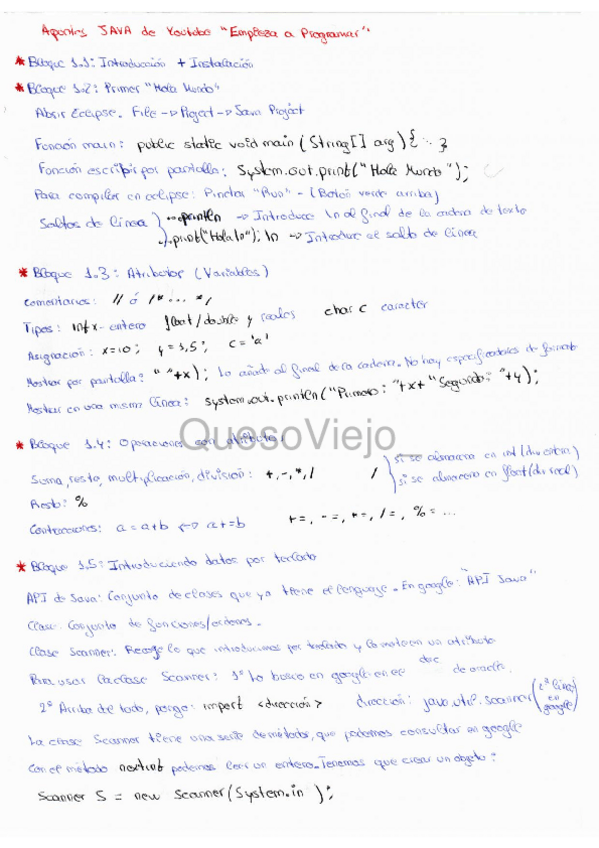 Apuntes JAVA de Youtube "Empieza a Programar"
* Bloque 1.1: Introducción + Instalación
* Bloque 1.2: Primer "Hola Mundo"
Abrir Eclipse. File -> Project -> Java Project
Función main: public static void main (String[] arg) { ... }
Función escribir por pantalla: System.out.print("Hola Mundo");
Para compilar en eclipse: Pinchar "Run" - (Botón verde arriba)
Saltos de línea } ...println -> Introduce \n al final de la cadena de texto
...print("Hola\n"); \n -> Introduce el salto de línea
* Bloque 1.3: Atributos (Variables)
Comentarios: // ó /* ... */
Tipos: int x- entero float/double y reales char c caracter
Asignación: x=10; y=1,5; c='a'
Mostrar por pantalla: " "+x); Lo añade al final de la cadena. No hay especificadores de formato
Mostrar en una misma línea: system.out.println("Primero: "+x+"Segundo: "+y);
QuesoViejo
* Bloque 1.4: Operaciones con atributos
Suma, resta, multiplicación, división: +,-,*,/ / } si se almacena en int (div entera)
si se almacena en float (div real)
Resto: %
Contracciones: a=a+b <-> a+=b +=, -=, *=, /=, %= ...
* Bloque 1.5: Introduciendo datos por teclado
API de Java: Conjunto de clases que ya tiene el lenguaje. En google: "API Java"
Clase: Conjunto de funciones/ordenes.
Clase Scanner: Recoge lo que introducimos por teclado y lo mete en un atributo
Para usar la clase Scanner: 1º Lo busco en google en el doc de oracle.
2º Arriba de todo, pongo: import <dirección> dirección: java.util.scanner (2ª línea en google)
La clase Scanner tiene una serie de métodos, que podemos consultar en google
Con el método nextInt podemos leer un entero. Tenemos que crear un objeto:
Scanner S = new Scanner(System.in );